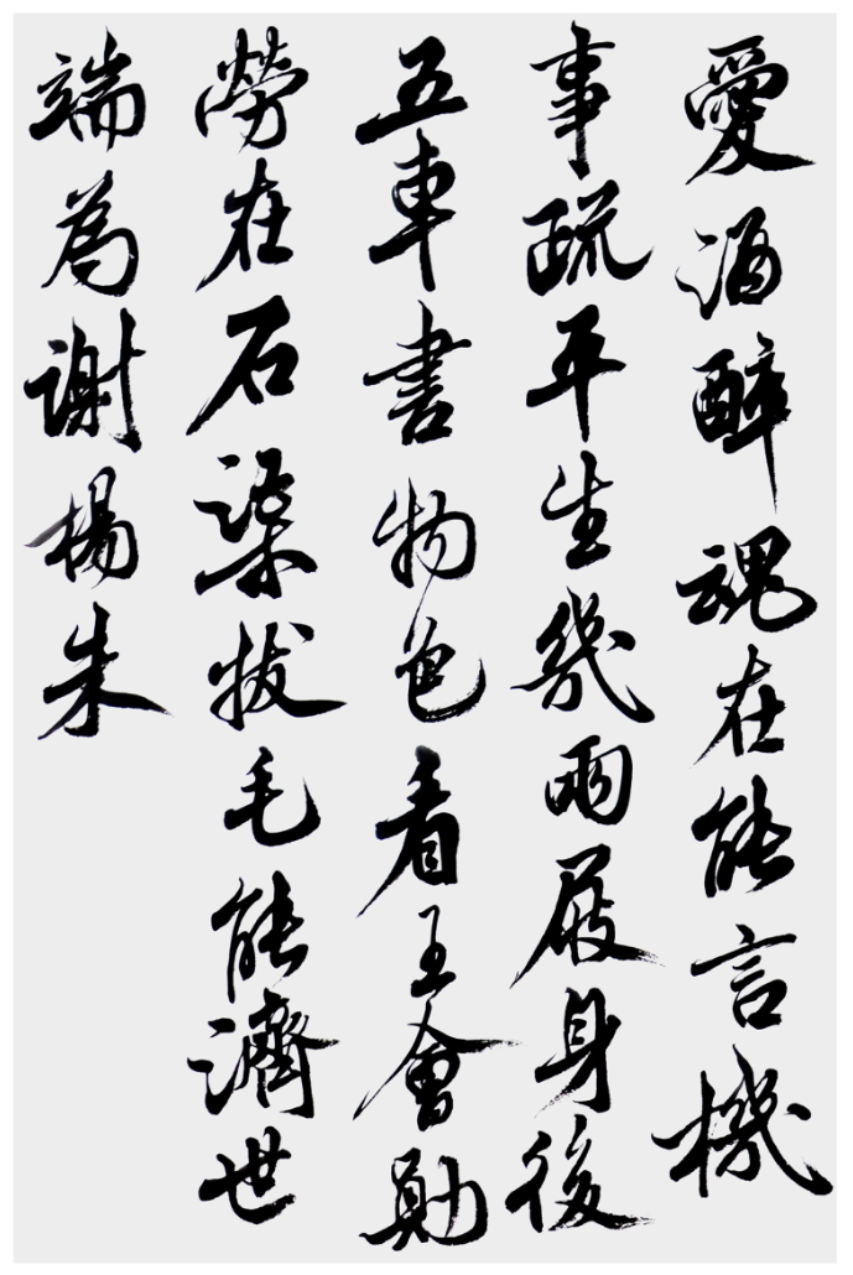 愛酒醉魂在能言機
事疏平生幾兩屐身後
五車書物色看王會勛
勞在石渠拔毛能濟世
端為謝楊朱